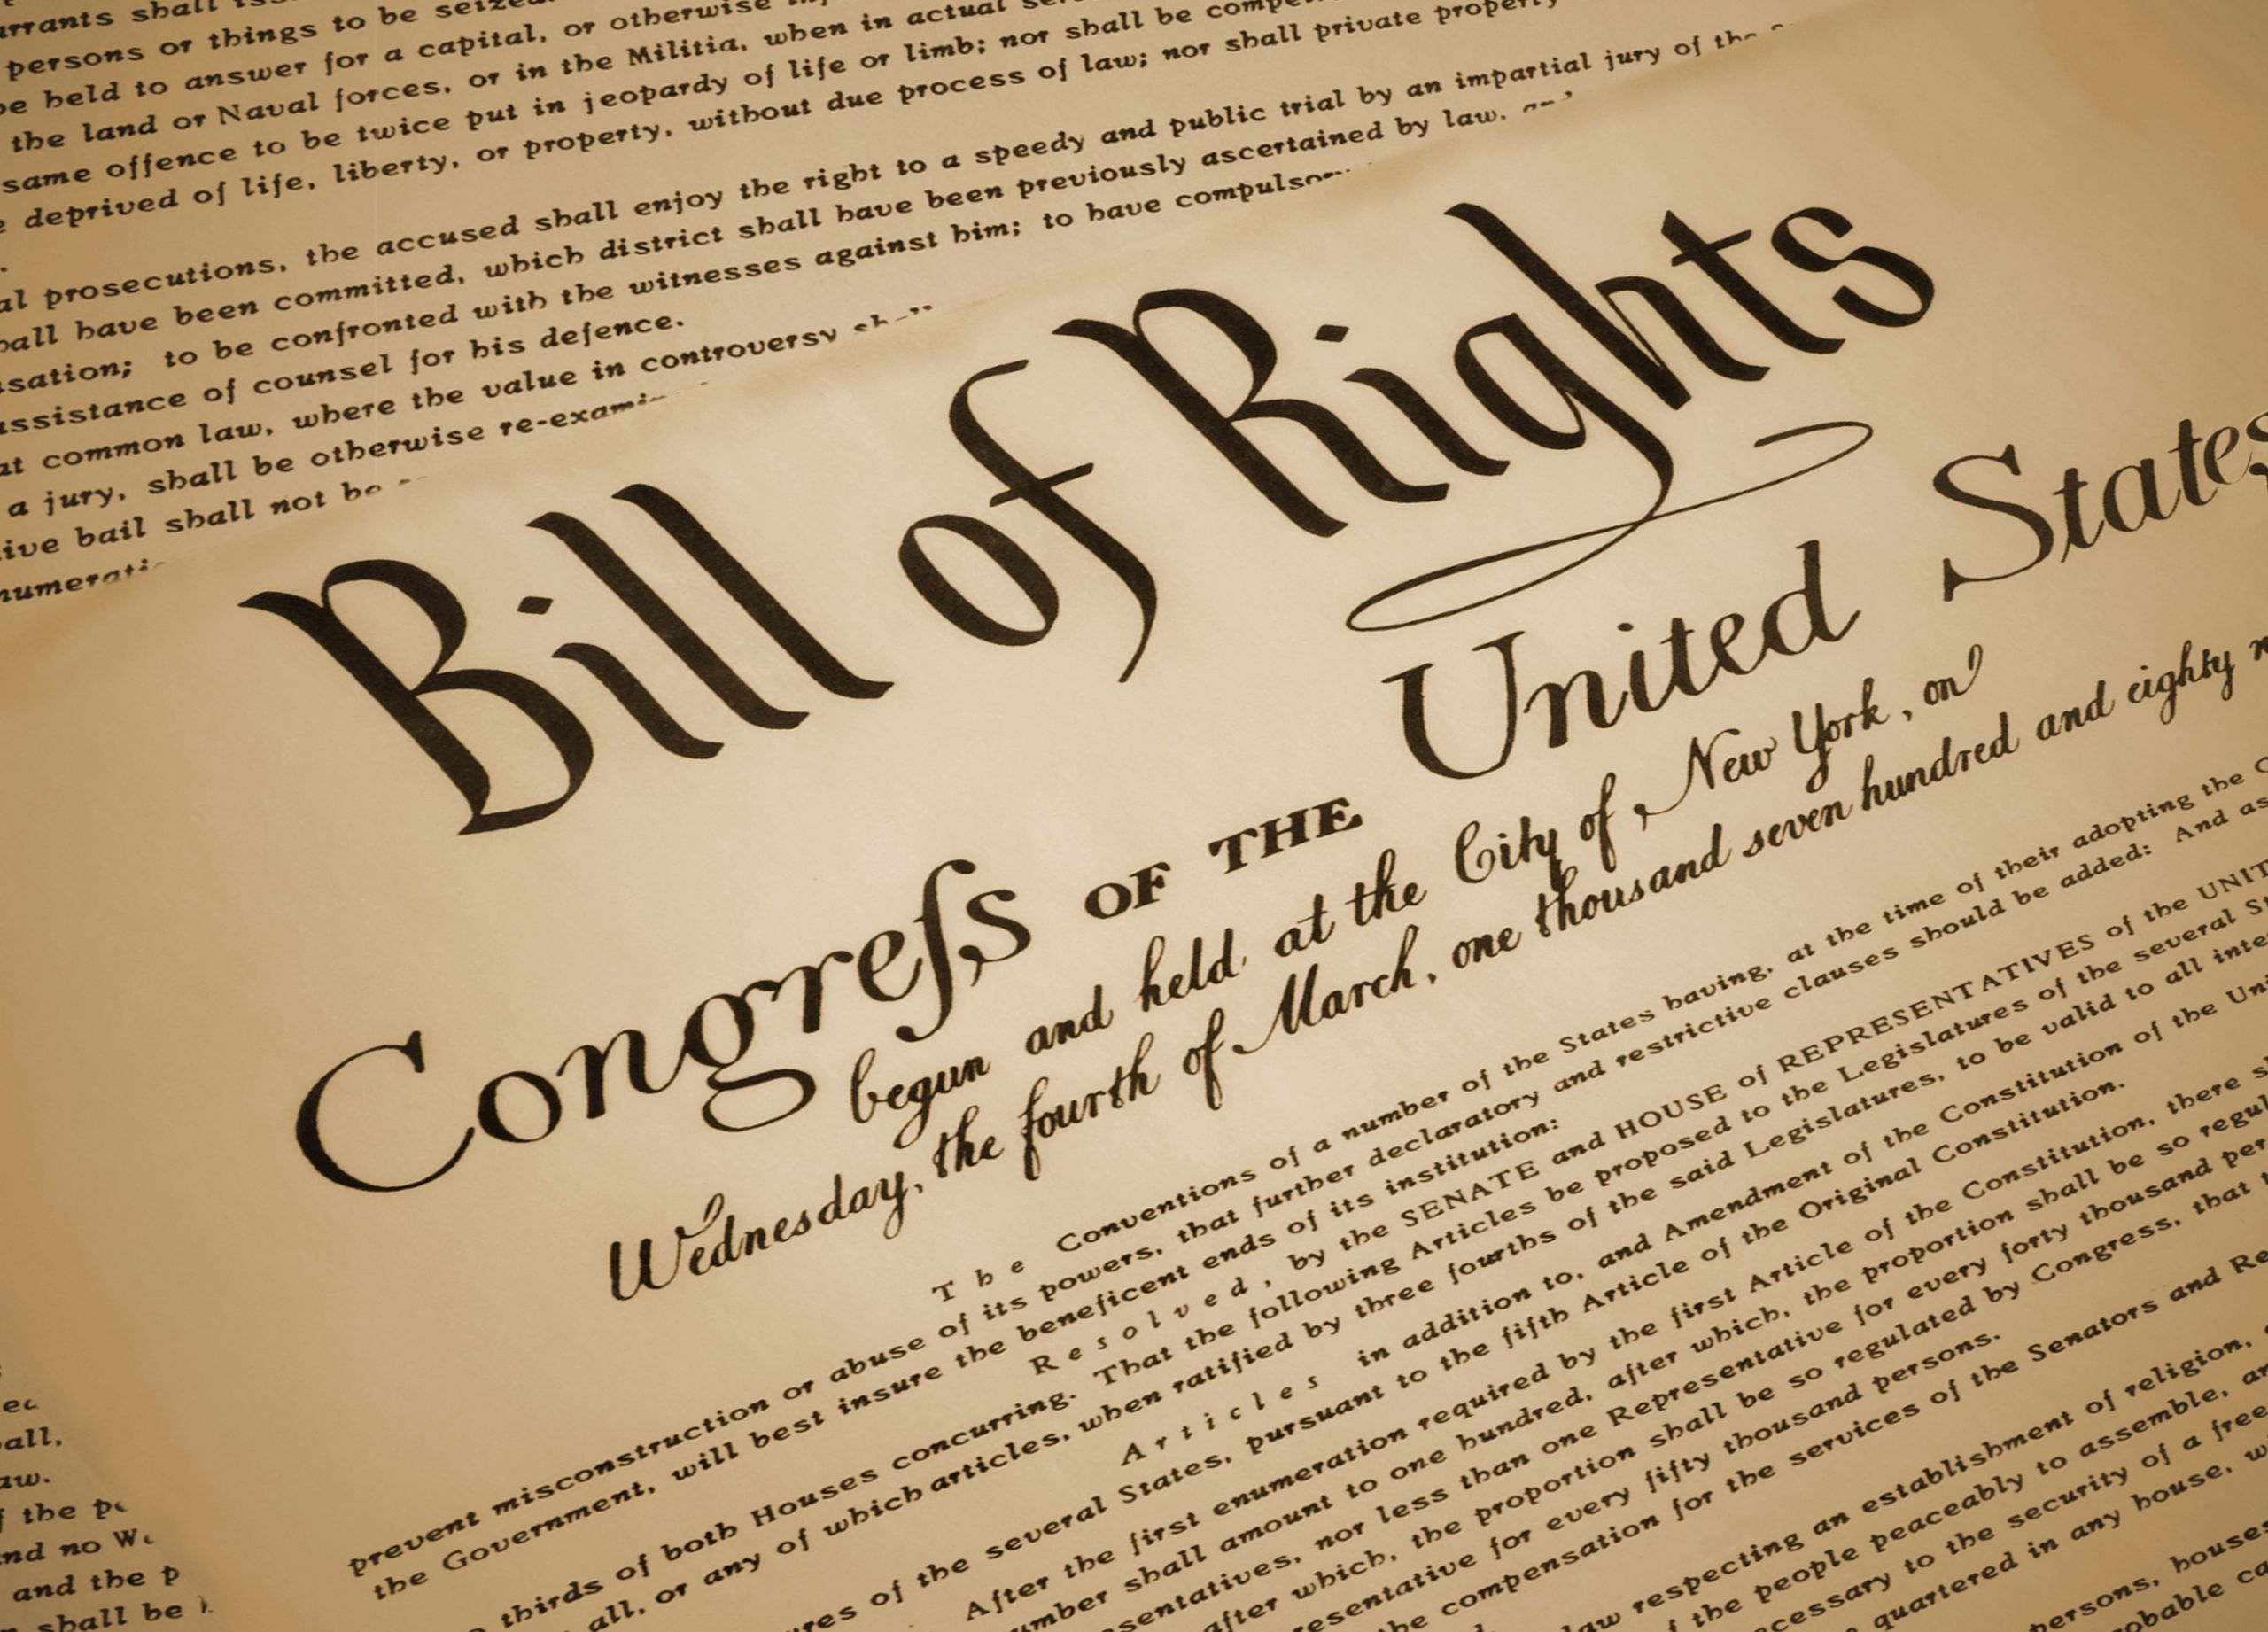 arrants shall
persons or things to be seized
be held to answer for a capital, or otherwise
the land or Naval forces, or in the Militia, when in actual
same offence to be twice put in jeopardy of life or limb; nor shall be
deprived of life, liberty, or property, without due process of law; nor shall private property
al prosecutions, the accused shall enjoy the right to a speedy and public trial by an impartial jury of the
hall have been committed, which district shall have been previously ascertained by law, and
sation; to be confronted with the witnesses against him; to have compulsory
assistance of counsel for his defence.
at common law, where the value in controversy shall
a jury, shall be otherwise re-exami
ive bail shall not be
numerati
Bill of Rights
Congreſs OF THE United States
begun and held at the City of New York, on
Wednesday, the fourth of March, one thousand seven hundred and eighty n
The Conventions of a number of the States having, at the time of their adopting the C
prevent misconstruction or abuse of its powers, that further declaratory and restrictive clauses should be added: And as
the Government, will best insure the beneficent ends of its institution:
Resolved, by the SENATE and HOUSE of REPRESENTATIVES of the UNIT
thirds of both Houses concurring. That the following Articles be proposed to the Legislatures of the several St
all, or any of which articles, when ratified by three fourths of the said Legislatures, to be valid to all inte
Articles in addition to, and Amendment of the Constitution of the Uni
ures of the several States, pursuant to the fifth Article of the Original Constitution.
After the first enumeration required by the first Article of the Constitution, there s
umber shall amount to one hundred, after which, the proportion shall be so regul
esentatives, nor less than one Representative for every forty thousand per
after which, the proportion shall be so regulated by Congress, that
resentative for every fifty thousand persons.
the compensation for the services of the Senators and Re
law respecting an establishment of religion,
f the people peaceably to assemble, an
cessary to the security of a free
quartered in any house, wi
persons, houses
robable ca
all,
aw.
f the pe
nd no Wa
and the p
shall be